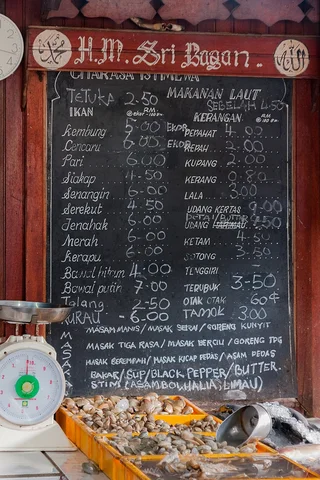 H.M. Sri Bagan.
CITARASA ISTIMEWA
TETUKA 2.50 MAKANAN LAUT
SEBELAH 4.50
IKAN RM. KERANGAN RM.
Kembung 5.00 EKOR PEPAHAT 4.00
Cencaru 6.00 EKOR REPAH 2.00
Pari 6.00 KUPANG 2.00
Siakap 4.50 KERANG 0.80
Senangin 6.00 LALA 3.50
Serekut 4.50 UDANG KERTAS 9.00
Jenahak 6.00 UDANG HARIMAU
Merah 6.00 KETAM 4.50
Kerapu 6.00 SOTONG
Bawal hitam 4.00 TENGGIRI
Bawal putih 7.00 TERUBUK 3-50
Talang 2-50 OTAK OTAK 60¢
KURAU - 6.00 TAMOK 3.00
MASAK
MASAM MANIS/MASAK SEBUI/GORENG KUNYIT
MASAK TIGA RASA/MASAK BERCILI/GORENG TPG
MASAK BEREMPAH/MASAK KICAP PEDAS/ASAM PEDAS
BAKAR/SUP/BLACK PEPPER/BUTTER.
STIM (ASAMBOI, HALIA, LIMAU)